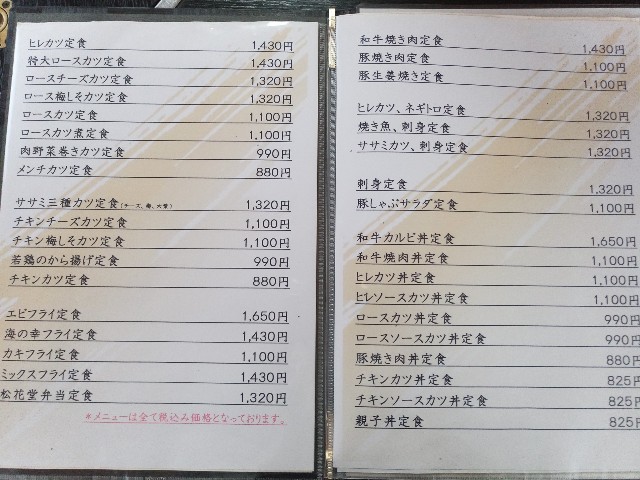 ヒレカツ定食 1,430円
特大ロースカツ定食 1,430円
ロースチーズカツ定食 1,320円
ロース梅しそカツ定食 1,320円
ロースカツ定食 1,100円
ロースカツ煮定食 1,100円
肉野菜巻きカツ定食 990円
メンチカツ定食 880円
ササミ三種カツ定食(チーズ、梅、大葉) 1,320円
チキンチーズカツ定食 1,100円
チキン梅しそカツ定食 1,100円
若鶏のから揚げ定食 990円
チキンカツ定食 880円
エビフライ定食 1,650円
海の幸フライ定食 1,430円
カキフライ定食 1,100円
ミックスフライ定食 1,430円
松花堂弁当定食 1,320円
*メニューは全て税込み価格となっております。
和牛焼き肉定食 1,430円
豚焼き肉定食 1,100円
豚生姜焼き定食 1,100円
ヒレカツ、ネギトロ定食 1,320円
焼き魚、刺身定食 1,320円
ササミカツ、刺身定食 1,320円
刺身定食 1,320円
豚しゃぶサラダ定食 1,100円
和牛カルビ丼定食 1,650円
和牛焼肉丼定食 1,100円
ヒレカツ丼定食 1,100円
ヒレソースカツ丼定食 1,100円
ロースカツ丼定食 990円
ロースソースカツ丼定食 990円
豚焼き肉丼定食 880円
チキンカツ丼定食 825円
チキンソースカツ丼定食 825円
親子丼定食 825円